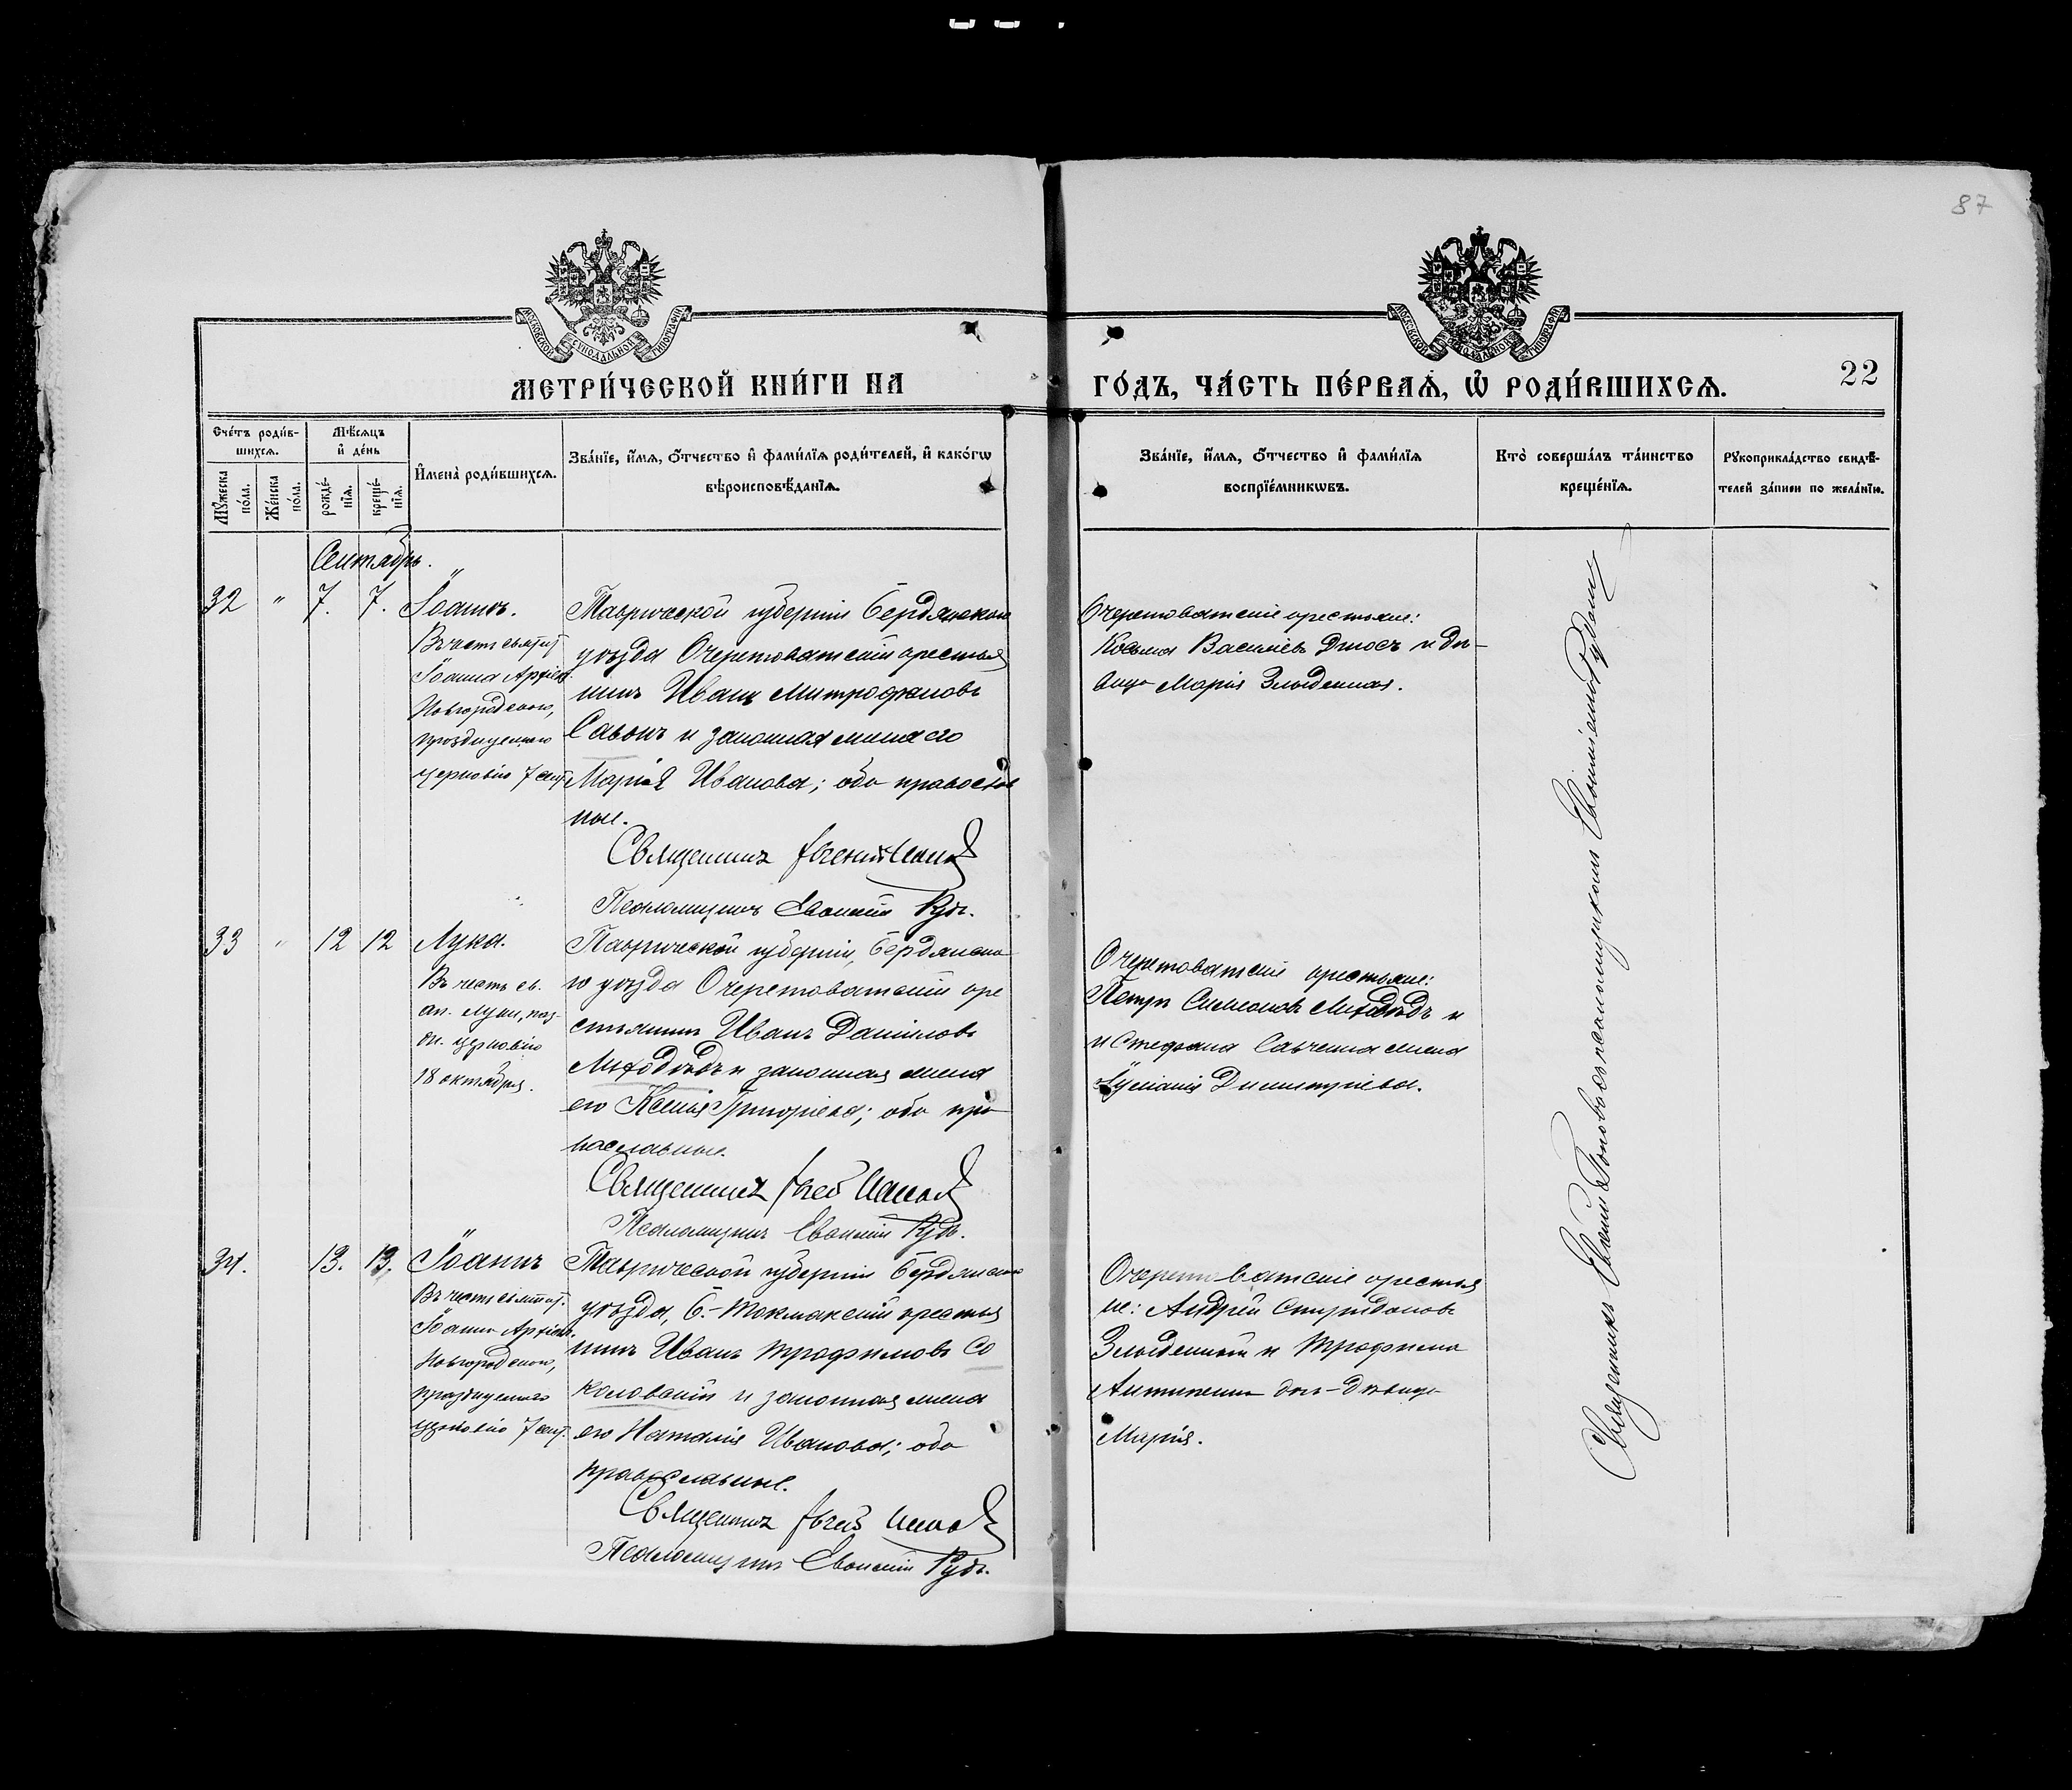 87
МОСКОВСКОЙ СѴНОДАЛЬНОЙ ТИПОГРАФІИ
МОСКОВСКОЙ СѴНОДАЛЬНОЙ ТИПОГРАФІИ
МЕТРИ́ЧЕСКОЙ КНИ́ГИ НА
ГО́ДЪ, ЧА́СТЬ ПЕ́РВАѦ, Ѡ҆ РОДИ́ВШИХСѦ.
22
Сче́тъ роди́в-
шихсѧ.
Мꙋ́жеска по́ла.
Же́нска по́ла.
Мѣ́сѧцъ
и҆ де́нь
рожде́нїѧ.
креще́нїѧ.
И҆мена̀ роди́вшихсѧ.
Зва́нїе, и҆́мѧ, ѻ҆́тчество и҆ фами́лїѧ роди́телей, и҆ како́гѡ
вѣроисповѣ́данїѧ.
Зва́нїе, и҆́мѧ, ѻ҆́тчество и҆ фами́лїѧ
воспрїе́мникѡвъ.
Кто̀ соверша́лъ та́инство
креще́нїѧ.
Рꙋкоприкла́дство свидѣ́-
телей за́писи по жела́нїю.
Сентябрь.
32 " 7. 7. Іоаннъ.
Въ честь святит.
Іоанна Архіеп.
Новгородскаго,
празднуемаго
церковію 7 сент.
Таврической губерніи Бердянскаго
уѣзда Очеретоватскій крестья
нинъ Иванъ Митрофановъ
Савонъ и законная жена его
Марія Иванова; оба православ
ные.
Священникъ Евгеній Поповъ
Псаломщикъ Евѳимій Рудь.
Очеретоватскіе крестьяне:
Косьма Василіевъ и дѣ-
вица Марія Злыденная.
33 " 12 12 Лука.
Въ честь св.
ап. Луки, пра
зн. церковію
18 октября.
Таврической губерніи, Бердянска
го уѣзда Очеретоватскій кре
стьянинъ Иванъ Даніиловъ
Лиходѣдъ и законная жена
его Ксенія Григоріева; оба пра
вославные.
Священникъ Евген Поповъ
Псаломщикъ Евѳимій Рудь.
Очеретоватскіе крестьяне:
Петръ Симеоновъ Лиходѣдъ и
и Стефана Савченка жена
Іуліанія Димитріева.
34. 13. 13. Іоаннъ
Въ честь святит.
Іоанна Архіеп.
Новгородскаго,
празднуемаго
церковію 7 сент.
Таврической губерніи Бердянскаго
уѣзда, Б.-Токмакскій крестья
нинъ Иванъ Трофимовъ Со
коловскій и законная жена
его Наталія Иванова; оба
православные.
Священникъ Евген Поповъ
Псаломщикъ Евѳимій Рудь.
Очеретоватскіе крестья
не: Андрей Спиридоновъ
Злыденный и Трофима
Антипенка дочь-дѣвица
Марія.
Священникъ Евгеній Поповъ съ псаломщикомъ Евѳиміемъ Рудемъ